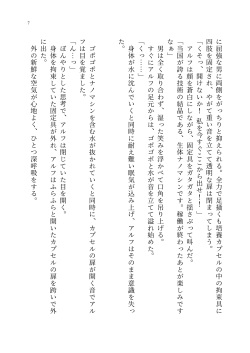 7
に屈強な男に両側をがっちりと抑えられる。全力で足掻くも培養カプセルの中の拘束具に
四肢を固定され、やがて重い音を立てて透明な扉は閉まってしまう。
「くそっ、開けないか！　私を今すぐここから出せ――！」
アルフは顔を蒼白にしながら、固定具をガタガタと揺さぶって叫んだ。
「当国が誇る技術の結晶である、生体ナノマシンです。稼働が終わったあとが楽しみです
なぁ」
男は全く取り合わず、湿った笑みを浮かべて口角を吊り上げる。
すぐにアルフの足元からは、ゴボゴボと水が音を立てて溢れ始めた。
「くっ……」
身体が水に沈んでいくと同時に耐え難い眠気が込み上げ、アルフはそのまま意識を失っ
た。
ゴボゴボとナノマシンを含む水が抜かれていくと同時に、カプセルの扉が開く音でアル
フは目を覚ました。
「ん……」
ぼんやりとした思考で、アルフは閉じていた目を開く。
身体を拘束していた固定具が外れ、アルフはふらふらと開いたカプセルの扉を跨いで外
に出た。
外の新鮮な空気が心地よく、ひとつ深呼吸をする。